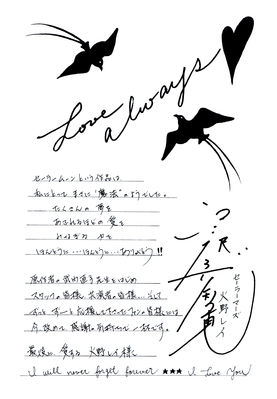 Love always
セーラームーンという作品は
私にとって まさに "魔法" のようでした。
たくさんの 夢を
あふれるほどの 愛を
ほんとうに…ほんとうに…ありがとう!!
原作者の武内直子先生をはじめ
スタッフの皆様、共演者の皆様…そして
ずっと ずーっと応援して下さったファンの皆様には
今、改めて、感謝の気持ちで 一杯です。
最後に、愛する 火野レイ様へ
セーラーマーズ
火野レイ
I will never forget forever ★★★ I Love You